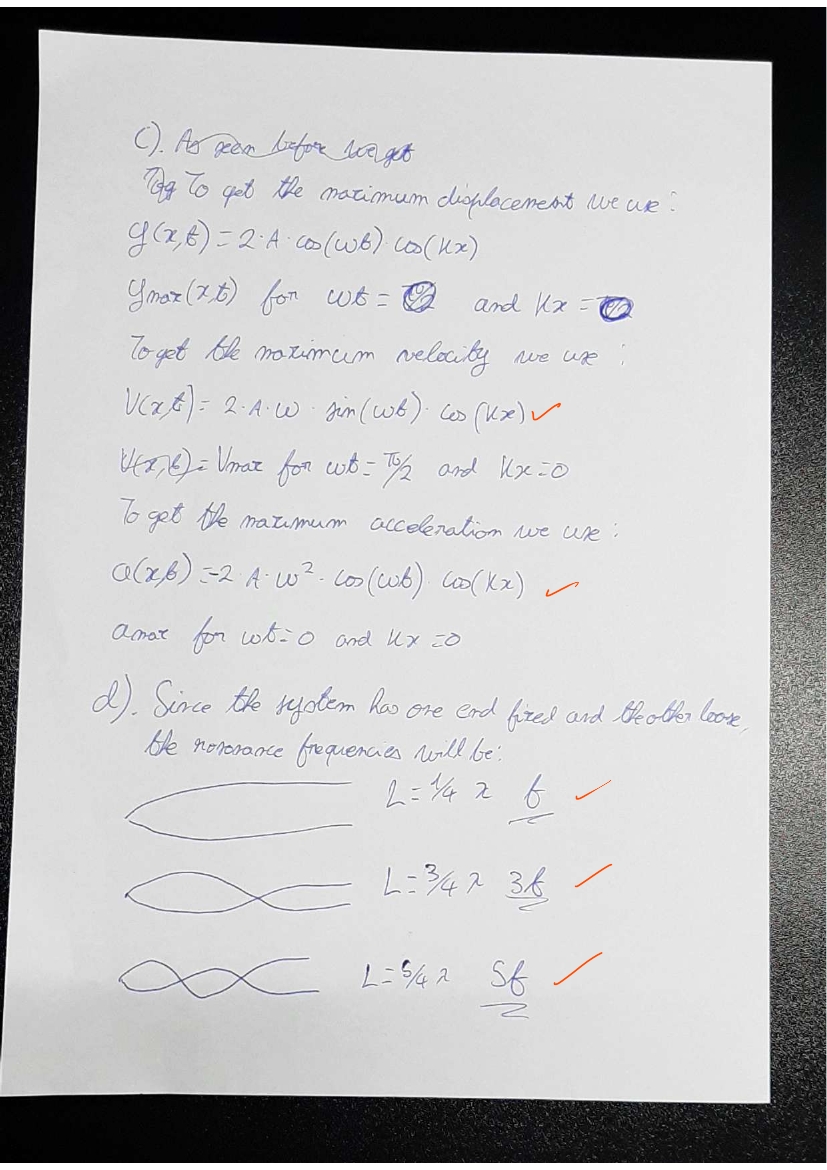 C). As seen before we get
To get the maximum displacement we use:
y(x,t) = 2·A·cos(ωt)·cos(Kx)
ymax(x,t) for ωt = 0 and Kx = 0
To get the maximum velocity we use:
V(x,t) = 2·A·ω·sin(ωt)·cos(Kx)
V(x,t) = Vmax for ωt = π/2 and Kx = 0
To get the maximum acceleration we use:
a(x,t) = -2·A·ω²·cos(ωt)·cos(Kx)
amax for ωt = 0 and Kx = 0
d). Since the system has one end fixed and the other loose,
the resonance frequencies will be:
L = 1/4 λ f
L = 3/4 λ 3f
L = 5/4 λ 5f